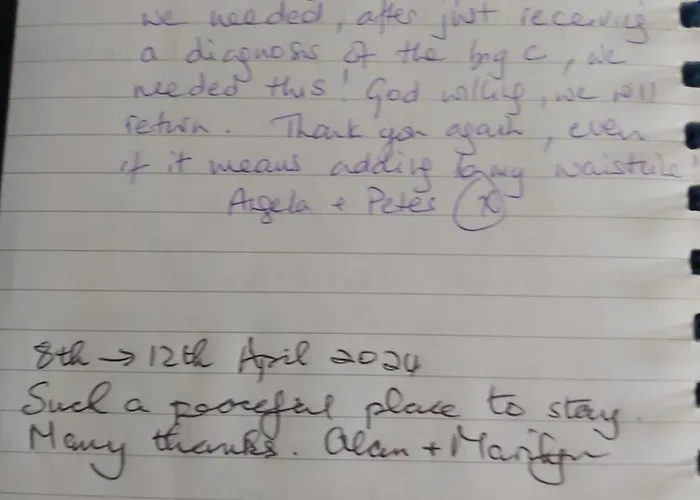 we needed, after just receiving
a diagnosis of the big c, we
needed this! God willing, we will
return. Thank you again, even
if it means adding to my waistline
Angela + Peter x
8th → 12th April 2024
Such a peaceful place to stay.
Many thanks. Alan + Marilyn